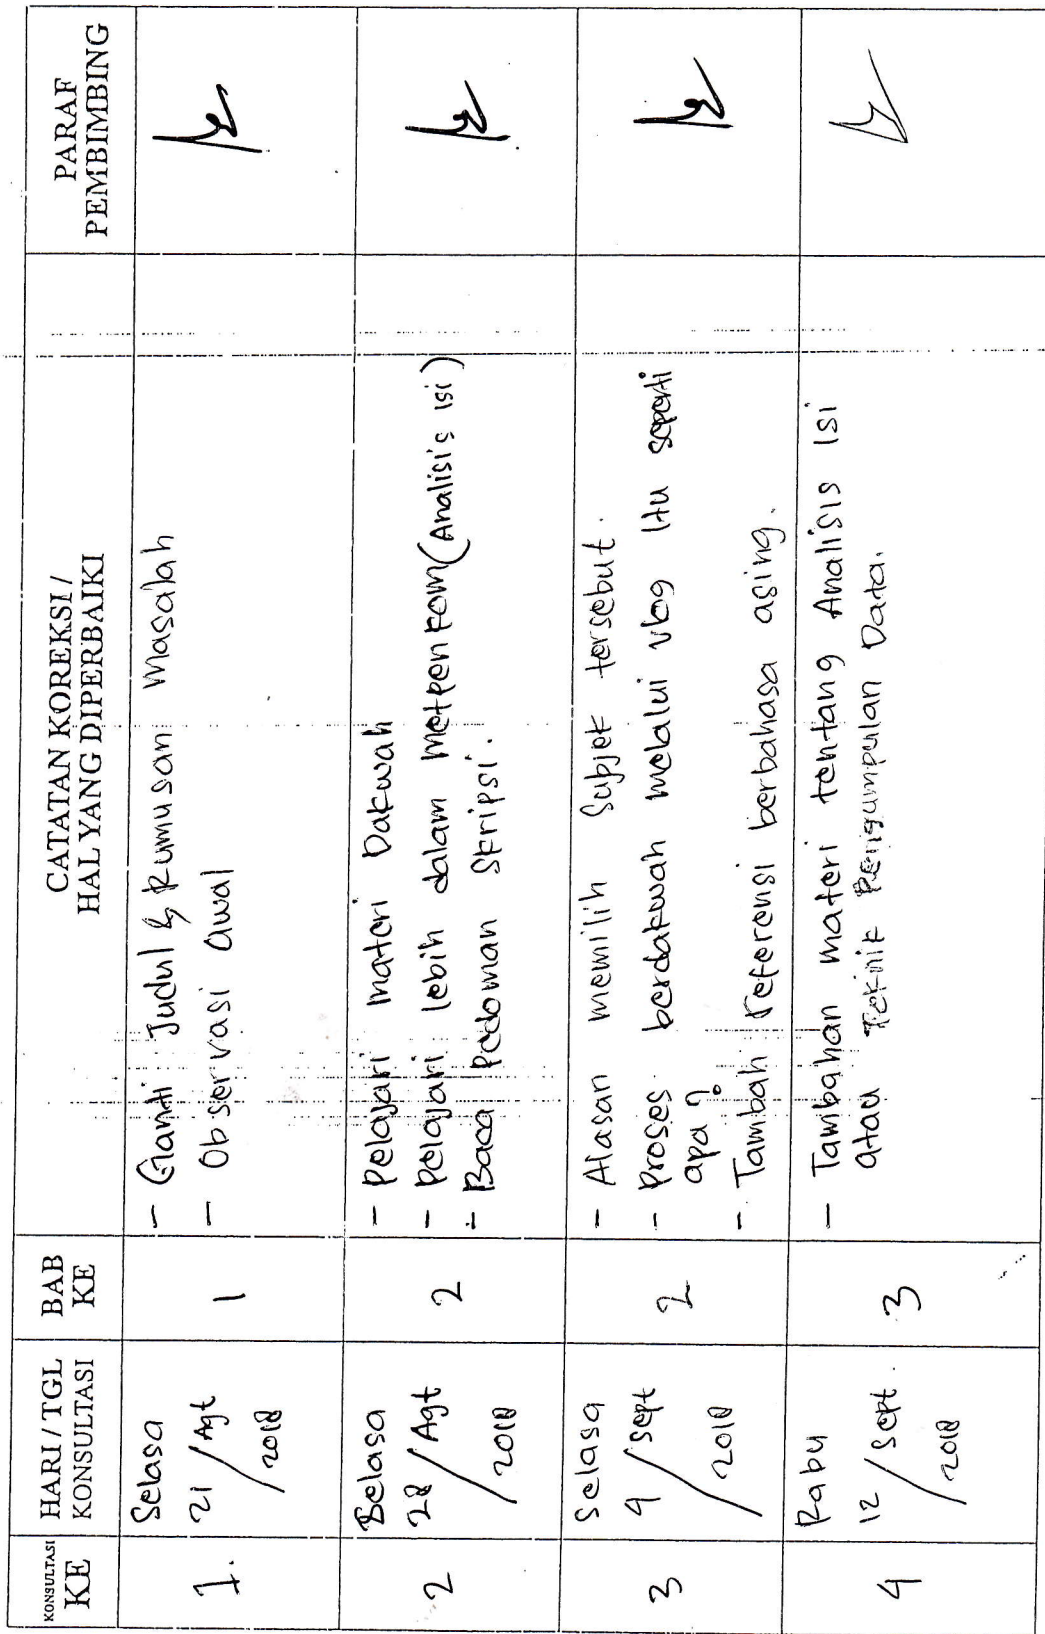 KONSULTASI KE
HARI / TGL KONSULTASI
BAB KE
CATATAN KOREKSI / HAL YANG DIPERBAIKI
PARAF PEMBIMBING
1.
Selasa
21 / Agt / 2018
1
- Ganti Judul & Rumusan Masalah
- Observasi awal
2
Selasa
28 / Agt / 2018
2
- Pelajari materi Dakwah
- Pelajari lebih dalam Metpenkom (Analisis isi)
- Baca Pedoman Skripsi.
3
Selasa
4 / Sept / 2018
2
- Alasan memilih Subjek tersebut.
- Proses berdakwah melalui vlog itu seperti
apa?
- Tambah referensi berbahasa asing.
4
Rabu
12 / Sept. / 2018
3
- Tambahan materi tentang Analisis Isi
atau Teknik Pengumpulan Data.